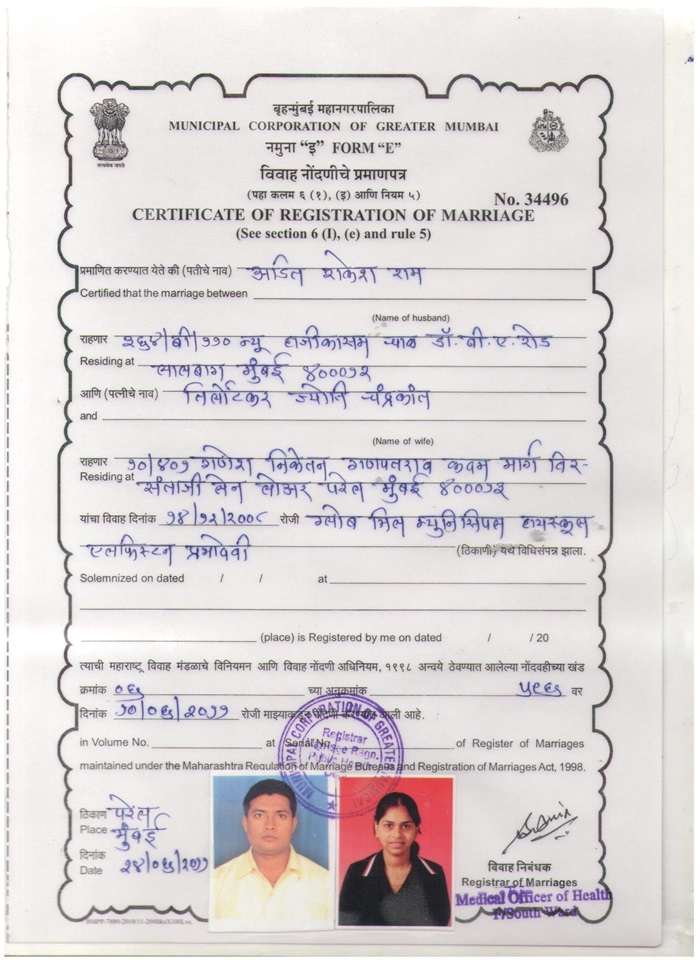 सत्यमेव जयते
बृहन्मुंबई महानगरपालिका
MUNICIPAL CORPORATION OF GREATER MUMBAI
नमुना “इ” FORM “E”
विवाह नोंदणीचे प्रमाणपत्र
(पहा कलम ६ (१), (इ) आणि नियम ५)
No. 34496
CERTIFICATE OF REGISTRATION OF MARRIAGE
(See section 6 (I), (e) and rule 5)
प्रमाणित करण्यात येते की (पतीचे नाव) राम
Certified that the marriage between
(Name of husband)
राहणार न्यू हाजीकासम चाळ डॉ. बी. ए. रोड
Residing at लालबाग मुंबई ४०००१२
आणि (पत्नीचे नाव) ज्योति चंद्रकांत
and
(Name of wife)
राहणार १०/४०१ गणेश निकेतन गणपतराव कदम मार्ग
Residing at लेन लोअर परेल मुंबई ४०००१३
यांचा विवाह दिनांक रोजी ग्लोब मिल म्युनिसिपल हायस्कूल
एलफिस्टन प्रभादेवी (ठिकाणी) येथे विधिसंपन्न झाला.
Solemnized on dated / / at
(place) is Registered by me on dated / / 20
त्याची महाराष्ट्र विवाह मंडळाचे विनियमन आणि विवाह नोंदणी अधिनियम, १९९८ अन्वये ठेवण्यात आलेल्या नोंदवहीच्या खंड
क्रमांक ०६ च्या अनुक्रमांक वर
दिनांक १०/०६/२०११ रोजी माझ्याकडून नोंदणी करण्यात आली आहे.
in Volume No. at Serial No. of Register of Marriages
maintained under the Maharashtra Regulation of Marriage Bureaus and Registration of Marriages Act, 1998.
MUNICIPAL CORPORATION OF GREATER
Registrar
ठिकाण परेल
Place मुंबई
दिनांक
Date २४/०६/२०११
विवाह निबंधक
Registrar of Marriages
Medical Officer of Health
F/South Ward